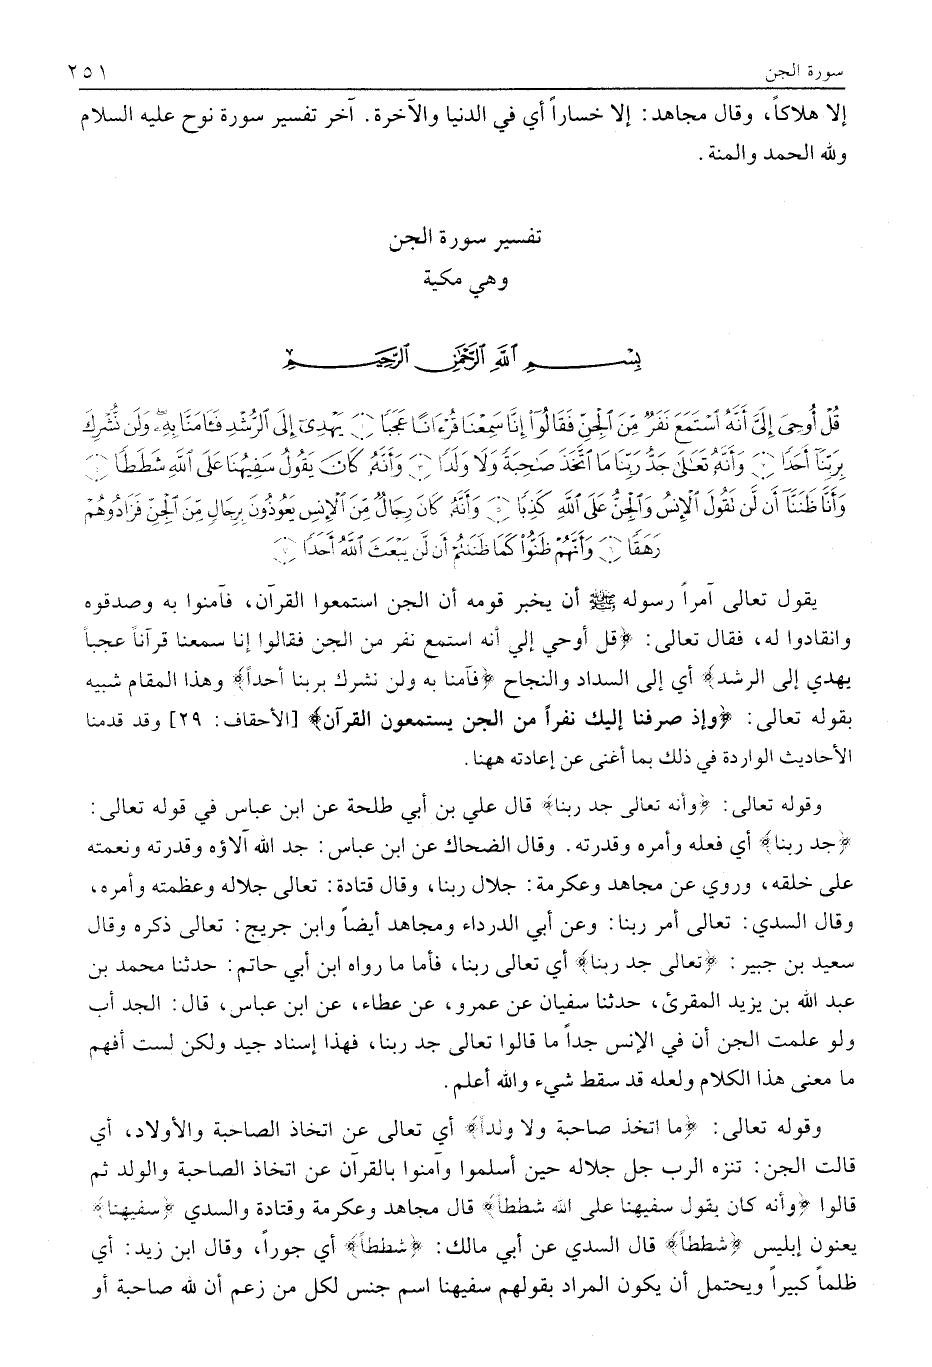 سورة الجن ٢٥١
إلا هلاكاً، وقال مجاهد: إلا خساراً أي في الدنيا والآخرة. آخر تفسير سورة نوح عليه السلام
ولله الحمد والمنة.
تفسير سورة الجن
وهي مكية
بِسْمِ ٱللَّهِ ٱلرَّحْمَٰنِ ٱلرَّحِيمِ
قُلْ أُوحِىَ إِلَىَّ أَنَّهُ ٱسْتَمَعَ نَفَرٌ مِّنَ ٱلْجِنِّ فَقَالُوٓا۟ إِنَّا سَمِعْنَا قُرْءَانًا عَجَبًا ﴿١﴾ يَهْدِىٓ إِلَى ٱلرُّشْدِ فَـَٔامَنَّا بِهِۦ وَلَن نُّشْرِكَ
بِرَبِّنَآ أَحَدًا ﴿٢﴾ وَأَنَّهُۥ تَعَٰلَىٰ جَدُّ رَبِّنَا مَا ٱتَّخَذَ صَٰحِبَةً وَلَا وَلَدًا ﴿٣﴾ وَأَنَّهُۥ كَانَ يَقُولُ سَفِيهُنَا عَلَى ٱللَّهِ شَطَطًا ﴿٤﴾
وَأَنَّا ظَنَنَّآ أَن لَّن تَقُولَ ٱلْإِنسُ وَٱلْجِنُّ عَلَى ٱللَّهِ كَذِبًا ﴿٥﴾ وَأَنَّهُۥ كَانَ رِجَالٌ مِّنَ ٱلْإِنسِ يَعُوذُونَ بِرِجَالٍ مِّنَ ٱلْجِنِّ فَزَادُوهُمْ
رَهَقًا ﴿٦﴾ وَأَنَّهُمْ ظَنُّوا۟ كَمَا ظَنَنتُمْ أَن لَّن يَبْعَثَ ٱللَّهُ أَحَدًا ﴿٧﴾
يقول تعالى آمراً رسوله ﷺ أن يخبر قومه أن الجن استمعوا القرآن، فآمنوا به وصدقوه
وانقادوا له، فقال تعالى: ﴿قل أوحي إلي أنه استمع نفر من الجن فقالوا إنا سمعنا قرآناً عجباً
يهدي إلى الرشد﴾ أي إلى السداد والنجاح ﴿فآمنا به ولن نشرك بربنا أحداً﴾ وهذا المقام شبيه
بقوله تعالى: ﴿وإذ صرفنا إليك نفراً من الجن يستمعون القرآن﴾ [الأحقاف: ٢٩] وقد قدمنا
الأحاديث الواردة في ذلك بما أغنى عن إعادته ههنا.
وقوله تعالى: ﴿وأنه تعالى جد ربنا﴾ قال علي بن أبي طلحة عن ابن عباس في قوله تعالى:
﴿جد ربنا﴾ أي فعله وأمره وقدرته. وقال الضحاك عن ابن عباس: جد الله آلاؤه وقدرته ونعمته
على خلقه، وروي عن مجاهد وعكرمة: جلال ربنا، وقال قتادة: تعالى جلاله وعظمته وأمره،
وقال السدي: تعالى أمر ربنا: وعن أبي الدرداء ومجاهد أيضاً وابن جريج: تعالى ذكره وقال
سعيد بن جبير: ﴿تعالى جد ربنا﴾ أي تعالى ربنا، فأما ما رواه ابن أبي حاتم: حدثنا محمد بن
عبد الله بن يزيد المقرئ، حدثنا سفيان عن عمرو، عن عطاء، عن ابن عباس، قال: الجد أب
ولو علمت الجن أن في الإنس جداً ما قالوا تعالى جد ربنا، فهذا إسناد جيد ولكن لست أفهم
ما معنى هذا الكلام ولعله قد سقط شيء والله أعلم.
وقوله تعالى: ﴿ما اتخذ صاحبة ولا ولداً﴾ أي تعالى عن اتخاذ الصاحبة والأولاد، أي
قالت الجن: تنزه الرب جل جلاله حين أسلموا وآمنوا بالقرآن عن اتخاذ الصاحبة والولد ثم
قالوا ﴿وأنه كان يقول سفيهنا على الله شططاً﴾ قال مجاهد وعكرمة وقتادة والسدي ﴿سفيهنا﴾
يعنون إبليس ﴿شططاً﴾ قال السدي عن أبي مالك: ﴿شططاً﴾ أي جوراً، وقال ابن زيد: أي
ظلماً كبيراً ويحتمل أن يكون المراد بقولهم سفيهنا اسم جنس لكل من زعم أن لله صاحبة أو